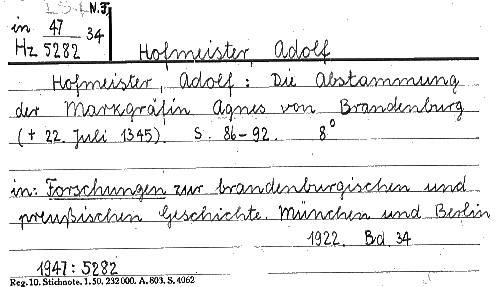 N.F.
in 47 34
Hz 5282
Hofmeister, Adolf
Hofmeister, Adolf: Die Abstammung
der Markgräfin Agnes von Brandenburg
(† 22. Juli 1345). S. 86-92. 8°
in: Forschungen zur brandenburgischen und
preußischen Geschichte. München und Berlin
1922. Bd 34
1947: 5282
Reg. 10. Stichnote. 1. 50. 232000. A. 803. S. 4062